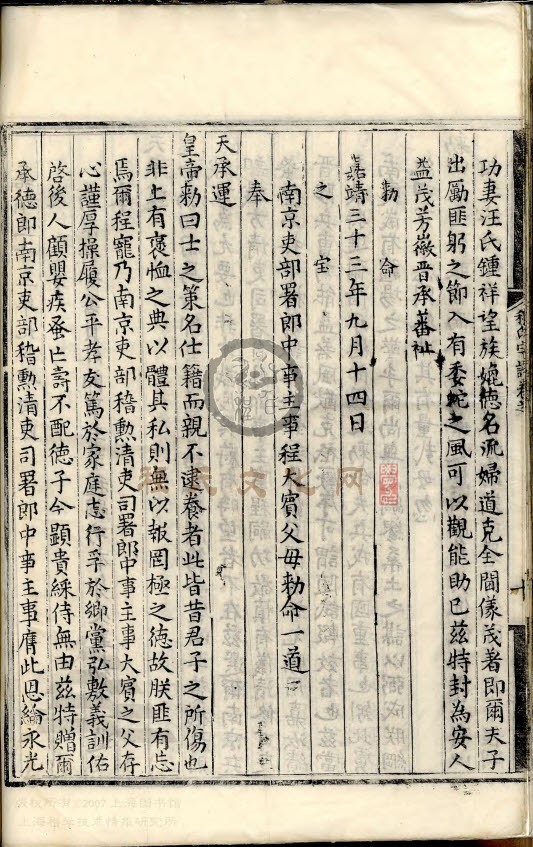 功妻汪氏鍾祥望族媲德名流婦道克全閫儀茂著即爾夫子
出勵匪躬之節入有委蛇之風可以觀能助已茲特封為安人
益茂芳徽晉承蕃祉
勅命
嘉靖三十三年九月十四日
之宝
南京吏部署郎中事主事程大賓父母勅命一道
奉
天承運
皇帝勅曰士之策名仕籍而親不逮養者此皆昔君子之所傷也
非上有褒恤之典以體其私則無以報罔極之德故朕匪有忘
焉爾程寵乃南京吏部稽勲清吏司署郎中事主事大賓之父存
心謹厚操履公平孝友篤於家庭志行孚於鄉黨弘敷義訓佑
啓後人顧嬰疾蚤亡壽不配德子今顯貴綵侍無由茲特贈爾
承德郎南京吏部稽勲清吏司署郎中事主事膺此恩綸永光
版权所有©2007上海图书馆
上海科学技术情报研究所